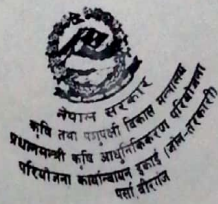 नेपाल सरकार
कृषि तथा पशुपंक्षी विकास मन्त्रालय
प्रधानमन्त्री कृषि आधुनिकिकरण परियोजना
परियोजना कार्यान्वयन इकाई (जोन-तरकारी)
पर्सा, बीरगंज